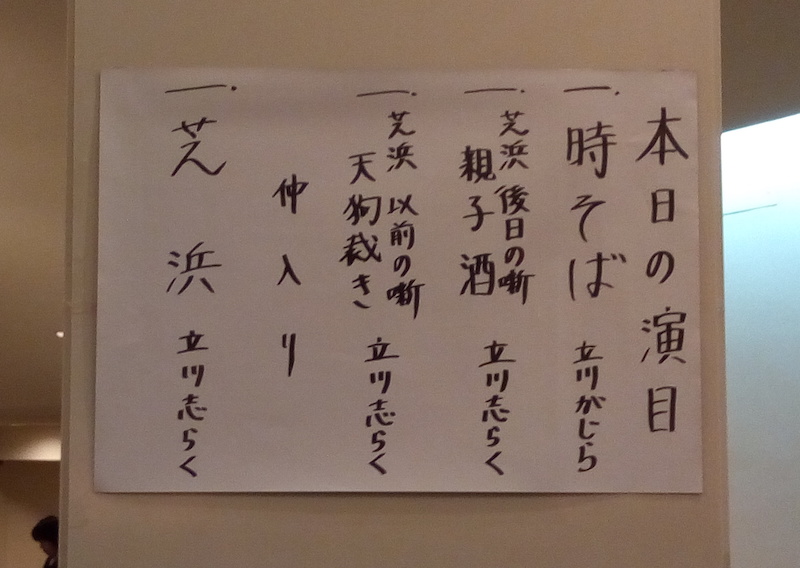 本日の演目
一.時そば 立川がじら
一.芝浜 後日の噺
親子酒 立川志らく
一.芝浜 以前の噺
天狗裁き 立川志らく
仲入り
一.芝浜 立川志らく